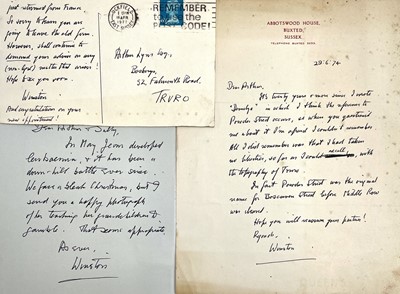 just returned from France.
So sorry to learn you are
going to leave the fold.
However, shall continue to
demand your advice on any
(non-legal) matter that arises!
Hope to see you soon.
Winston
And congratulations on your
new appointment!
UCKFIELD
1977
EAST SUSSEX
REMEMBER
to use the
POST CODE!
Arthur Lyne Esq.,
52, Falmouth Road,
TRURO
Dear Arthur & Sally,
In May Jean developed
leukaemia, & it has been a
down-hill battle ever since.
We face a bleak Christmas, but I
send you a happy photograph
of her teaching her grandchildren to
gamble. That seems appropriate.
As ever
Winston
ABBOTSWOOD HOUSE,
BUXTED,
SUSSEX.
TELEPHONE BUXTED
29.6.74
Dear Arthur,
It's twenty years or more since I wrote
in which I think the reference to
Powder Street occurs, so when you questioned
me about it I'm afraid I couldn't remember.
All I did remember was that I had taken
no liberties, so far as I could recall, with
the topography of Truro.
In fact Powder Street was the original
name for Boscawen Street before Middle Row
was cleared.
Hope you will reassure your father!
Regards,
Winston